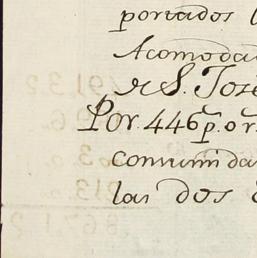 portados l
Acomoda
de S. Jose
Por. 446p. o r
comunida
las dos